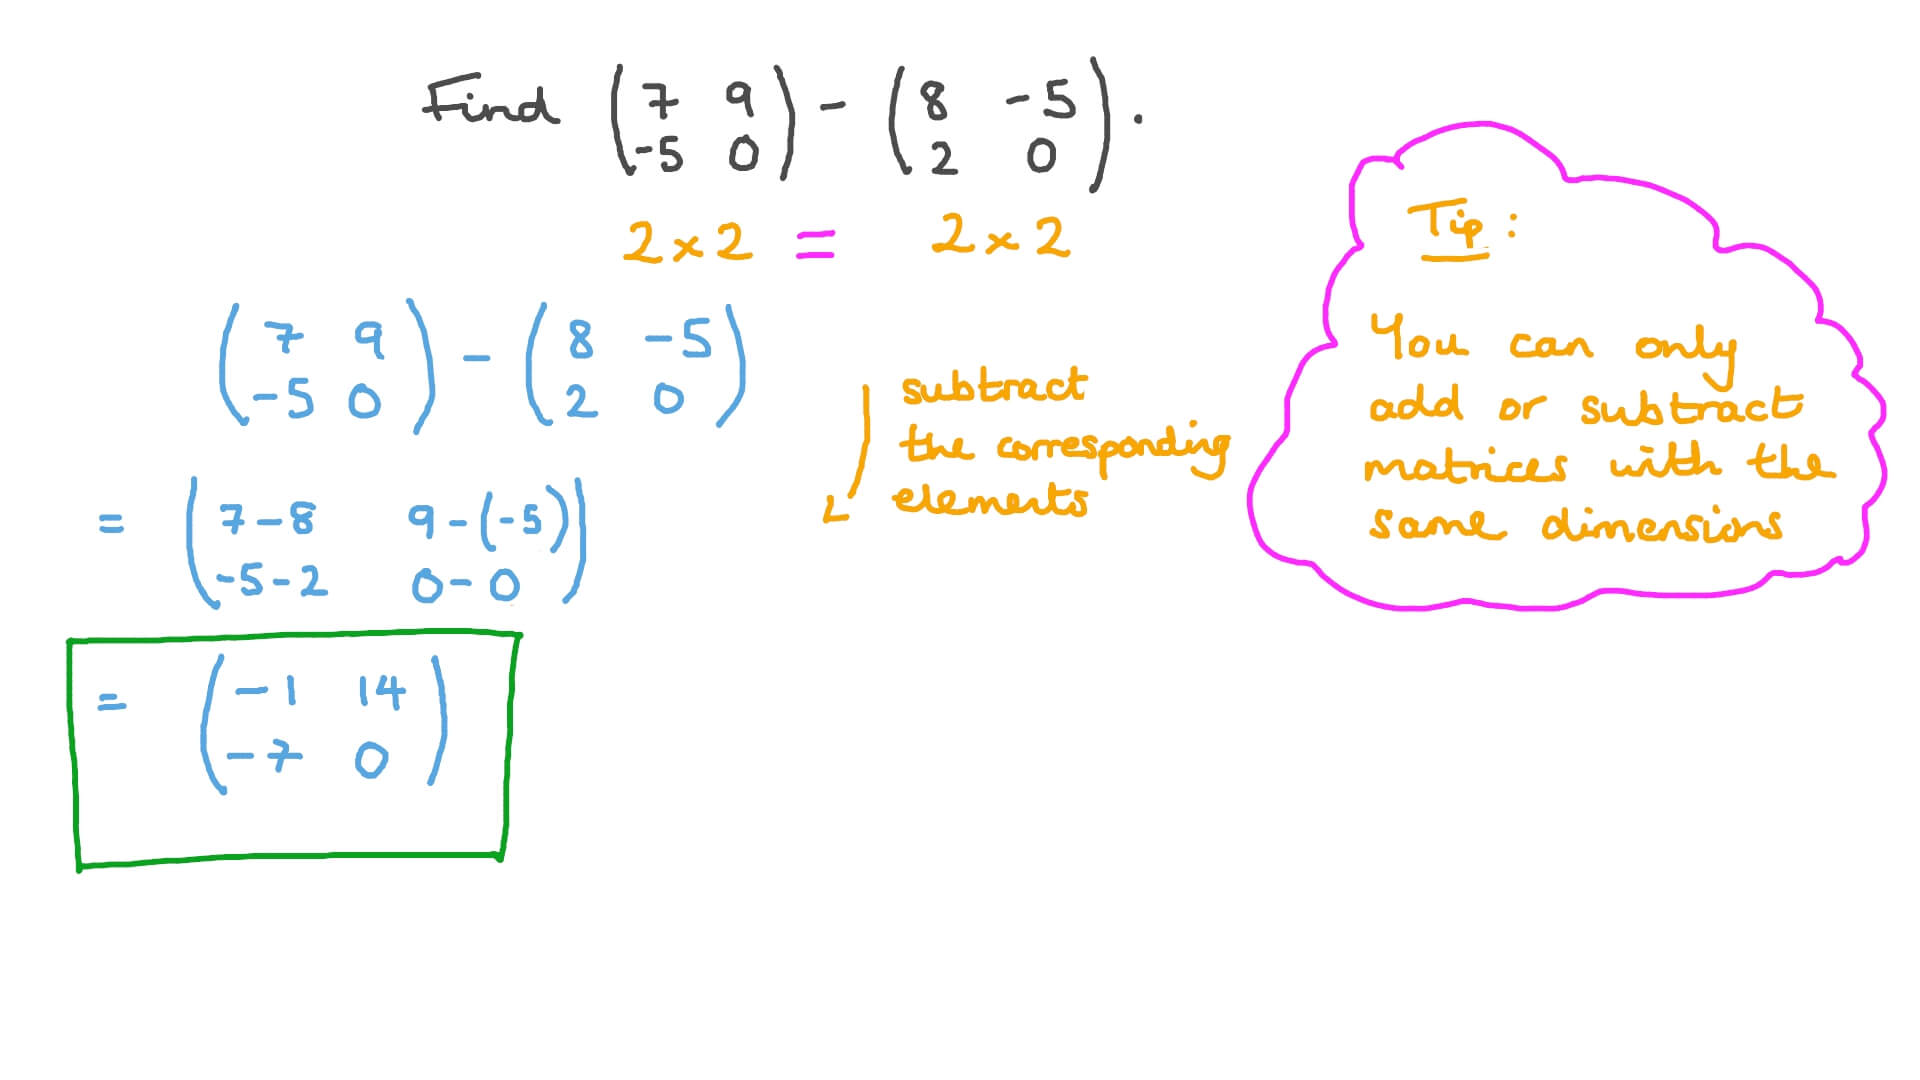 Find (7 9) - (8 -5).
(-5 0) (2 0)
2×2 = 2×2
(7 9) - (8 -5)
(-5 0) (2 0)
subtract
the corresponding
elements
= (7-8 9-(-5))
(-5-2 0-0)
= (-1 14)
(-7 0)
Tip:
You can only
add or subtract
matrices with the
same dimensions